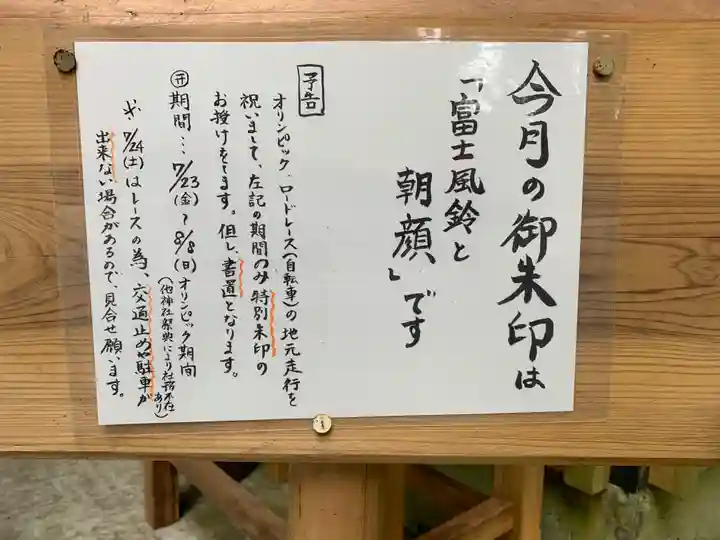 今月の御朱印は
「富士風鈴と
朝顔」です
予告
オリンピック、ロードレース(自転車)の地元走行を
祝いまして、左記の期間のみ特別朱印の
お授けをします。但し、書置となります。
期間…7/23(金)〜8/8(日)オリンピック期間
(他神社祭典により社務不在あり)
7/24(土)はレースの為、交通止めや駐車が
出来ない場合があるので、見合せ願います。